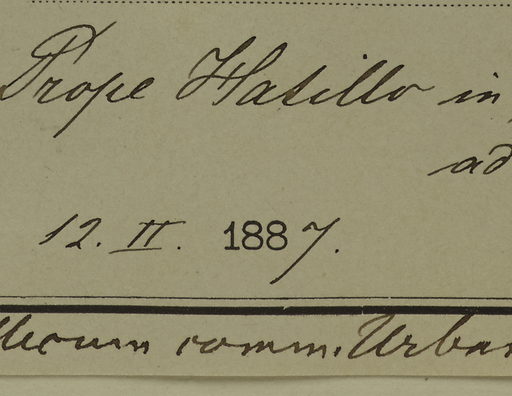 Prope Hatillo in
ad
12. II. 1887.
Mecum comm. Urban